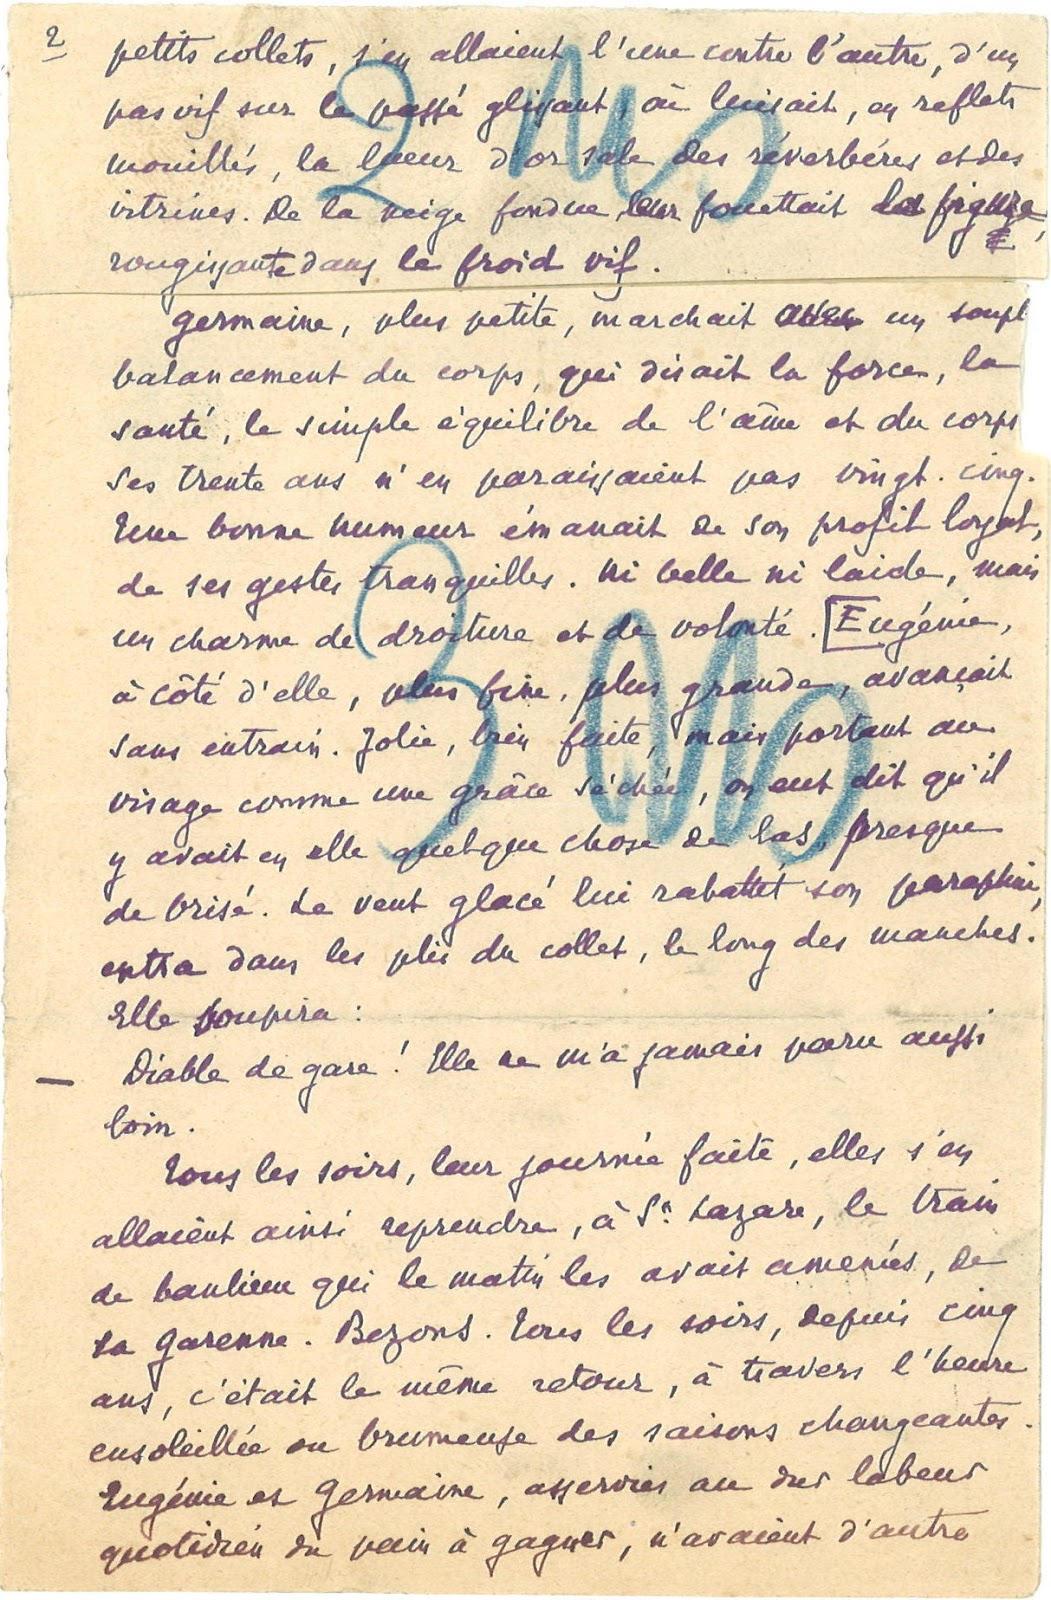 2
petits collets, s'en allaient l'une contre l'autre, d'un
pas vif sur le passé glissant, où luisait, en reflets
mouillés, la lueur d'or sale des réverbères et des
vitrines. De la neige fondue leur fouettait la figure,
rougissante dans le froid vif.
Germaine, plus petite, marchait avec un soupl
balancement du corps, qui disait la force, la
santé, le simple équilibre de l'âme et du corps
Ses trente ans n'en paraissaient pas vingt-cinq.
Une bonne humeur émanait de son profil loyal,
de ses gestes tranquilles. Ni belle ni laide, mais
un charme de droiture et de volonté. [Eugénie,
à côté d'elle, plus fine, plus grande, avançait
sans entrain. Jolie, bien faite, mais portant au
visage comme une grâce séchée, on eut dit qu'il
y avait en elle quelque chose de las, presque
de brisé. Le vent glacé lui rabattit son parapluie,
entra dans les plis du collet, le long des manches.
Elle soupira :
— Diable de gare ! Elle ne m'a jamais paru aussi
loin.
Tous les soirs, leur journée faite, elles s'en
allaient ainsi reprendre, à St. Lazare, le train
de banlieue qui le matin les avait amenées, de
La Garenne-Bezons. Tous les soirs, depuis cinq
ans, c'était le même retour, à travers l'heure
ensoleillée ou brumeuse des saisons changeantes.
Eugénie et Germaine, asservies au dur labeur
quotidien du pain à gagner, n'avaient d'autre